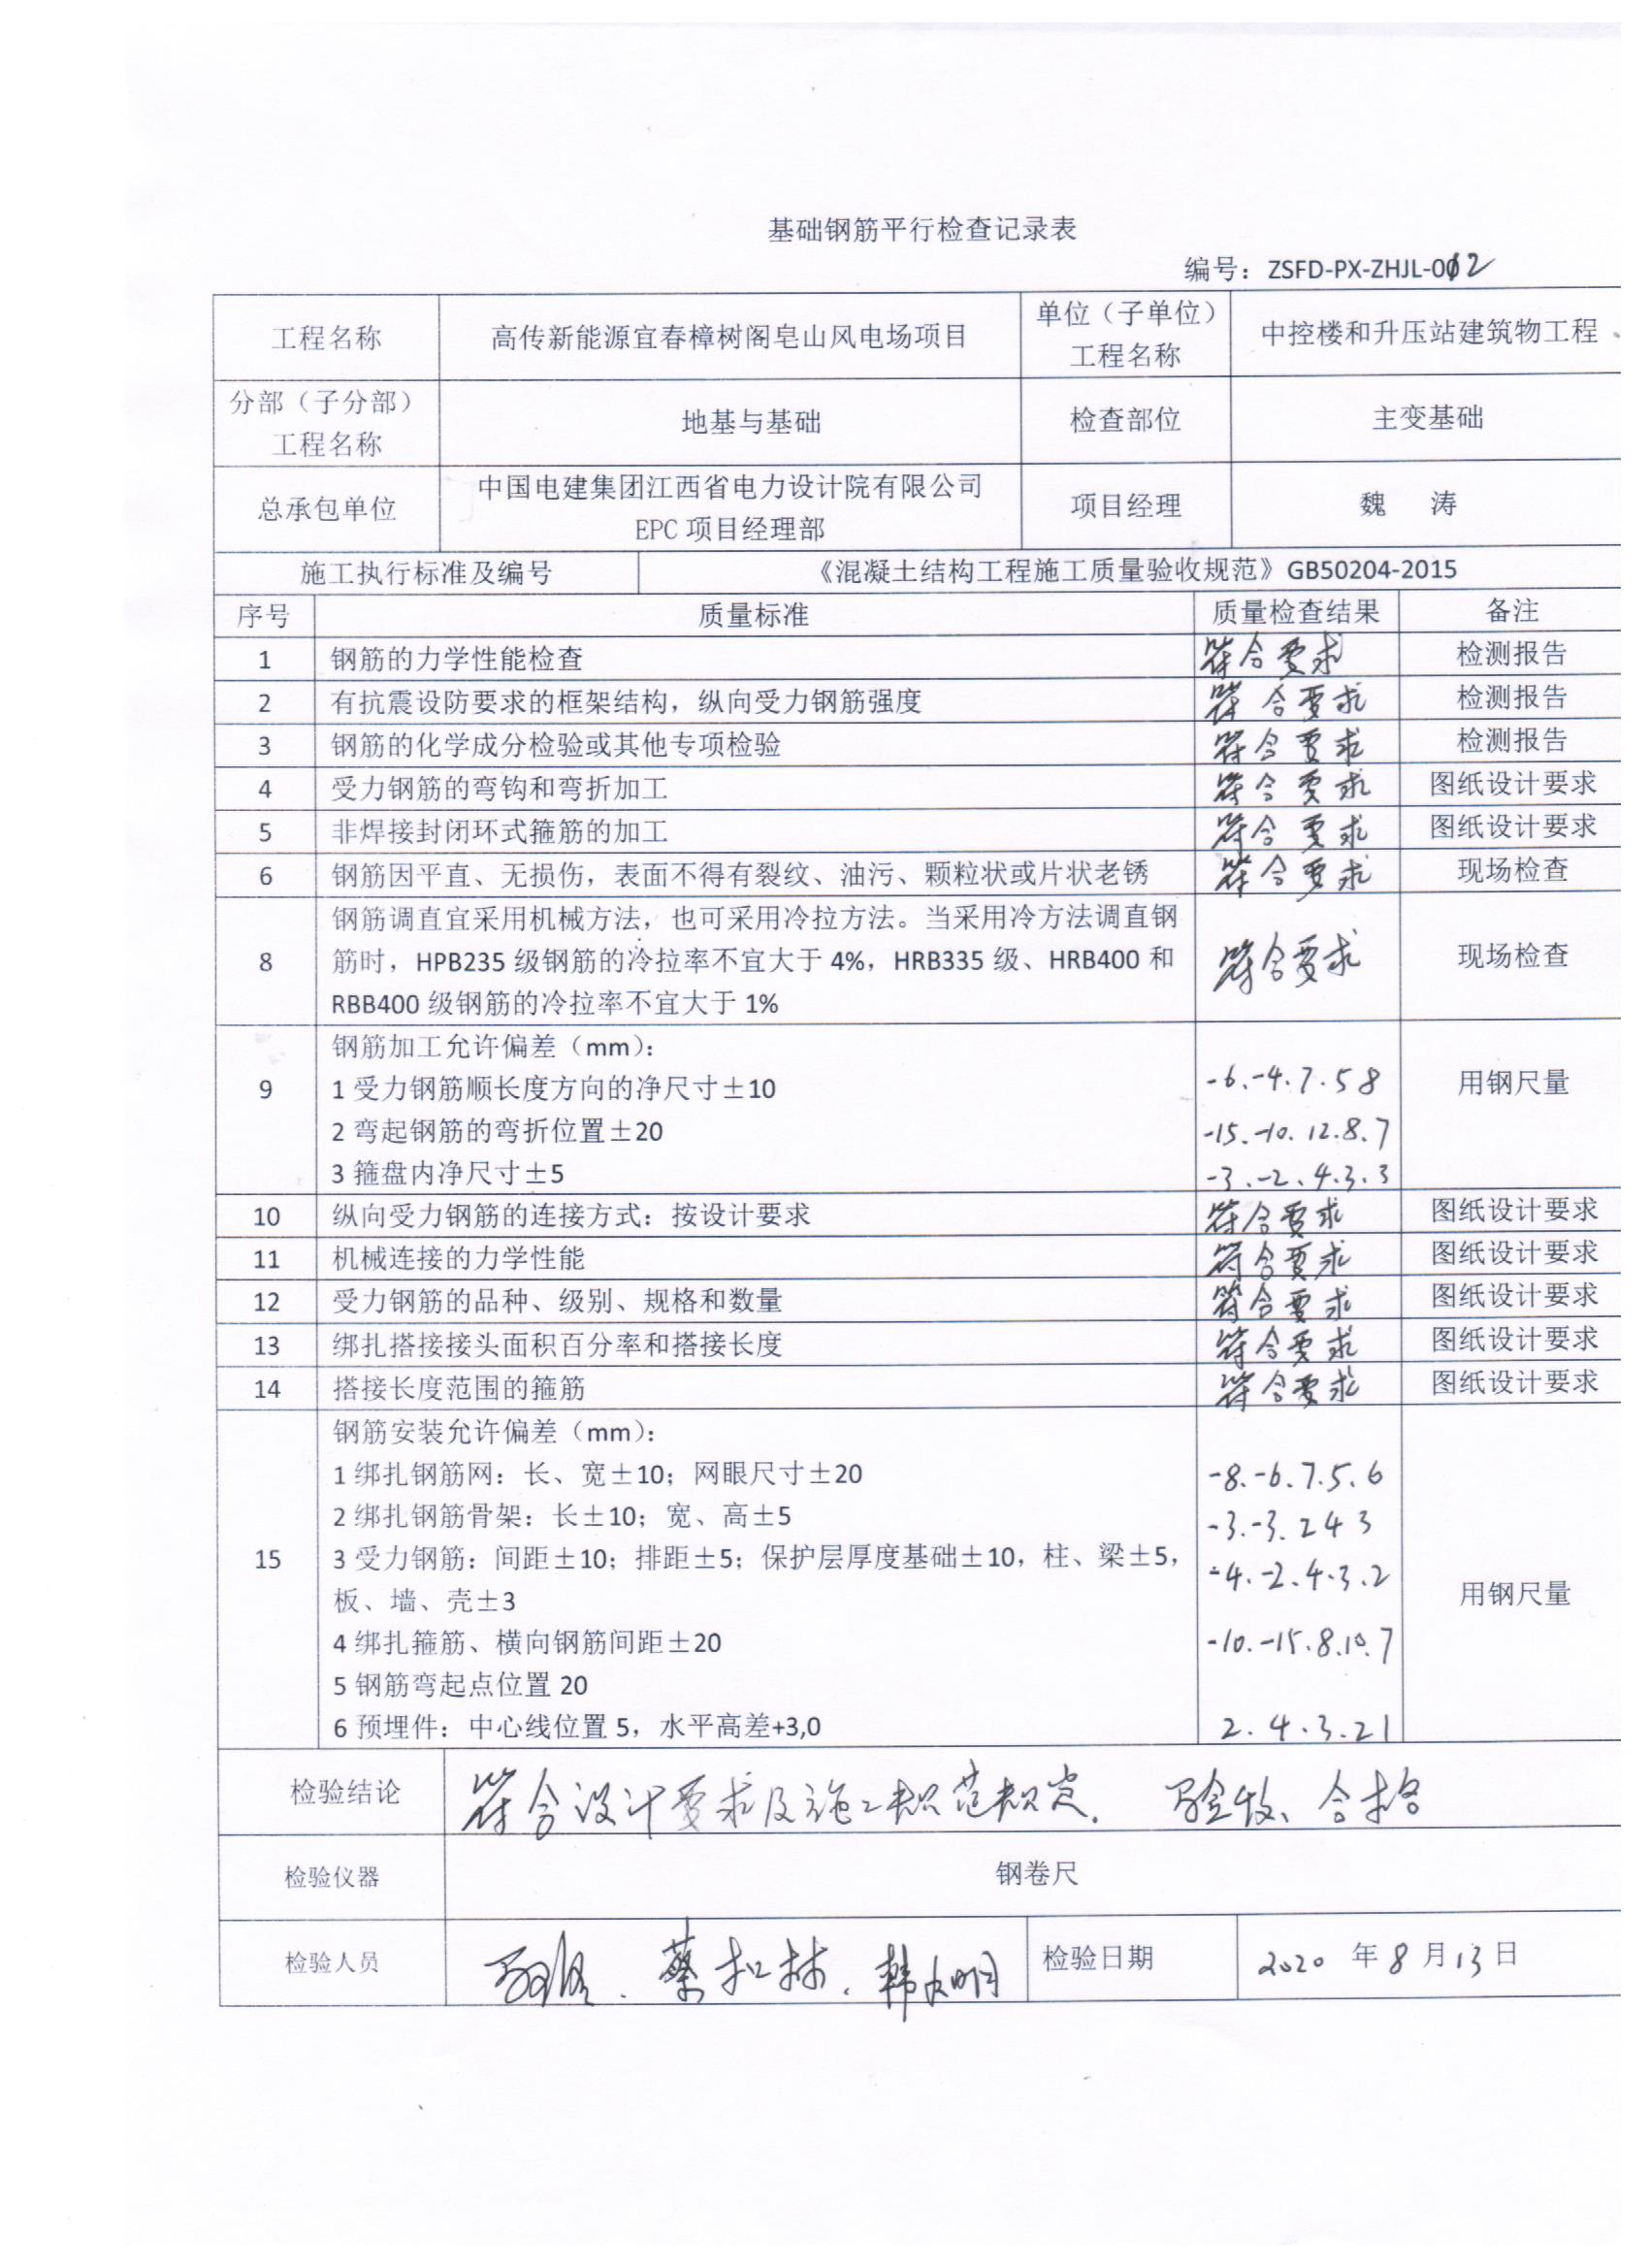 基础钢筋平行检查记录表
编号：ZSFD-PX-ZHJL-012
工程名称 高传新能源宜春樟树阁皂山风电场项目 单位（子单位）工程名称 中控楼和升压站建筑物工程
分部（子分部）工程名称 地基与基础 检查部位 主变基础
总承包单位 中国电建集团江西省电力设计院有限公司 EPC 项目经理部 项目经理 魏 涛
施工执行标准及编号 《混凝土结构工程施工质量验收规范》GB50204-2015
序号 质量标准 质量检查结果 备注
1 钢筋的力学性能检查 符合要求 检测报告
2 有抗震设防要求的框架结构，纵向受力钢筋强度 符合要求 检测报告
3 钢筋的化学成分检验或其他专项检验 符合要求 检测报告
4 受力钢筋的弯钩和弯折加工 符合要求 图纸设计要求
5 非焊接封闭环式箍筋的加工 符合要求 图纸设计要求
6 钢筋因平直、无损伤，表面不得有裂纹、油污、颗粒状或片状老锈 符合要求 现场检查
钢筋调直宜采用机械方法，也可采用冷拉方法。当采用冷方法调直钢
8 筋时，HPB235 级钢筋的冷拉率不宜大于 4%，HRB335 级、HRB400 和 符合要求 现场检查
RBB400 级钢筋的冷拉率不宜大于 1%
钢筋加工允许偏差（mm）：
9 1 受力钢筋顺长度方向的净尺寸±10 -6.-4.7.5 8 用钢尺量
2 弯起钢筋的弯折位置±20 -15.-10.12.8.7
3 箍盘内净尺寸±5 -3.-2.4.3.3
10 纵向受力钢筋的连接方式：按设计要求 符合要求 图纸设计要求
11 机械连接的力学性能 符合要求 图纸设计要求
12 受力钢筋的品种、级别、规格和数量 符合要求 图纸设计要求
13 绑扎搭接接头面积百分率和搭接长度 符合要求 图纸设计要求
14 搭接长度范围的箍筋 符合要求 图纸设计要求
钢筋安装允许偏差（mm）：
1 绑扎钢筋网：长、宽±10；网眼尺寸±20 -8.-6.7.5.6
2 绑扎钢筋骨架：长±10；宽、高±5 -3.-3.2 4 3
15 3 受力钢筋：间距±10；排距±5；保护层厚度基础±10，柱、梁±5， -4.-2.4.3.2 用钢尺量
板、墙、壳±3
4 绑扎箍筋、横向钢筋间距±20 -10.-15.8.10.7
5 钢筋弯起点位置 20
6 预埋件：中心线位置 5，水平高差+3,0 2.4.3.2 1
检验结论 符合设计要求及施工规范规定. 验收、合格
检验仪器 钢卷尺
检验人员 蔡扣林 检验日期 2020 年 8 月 13 日